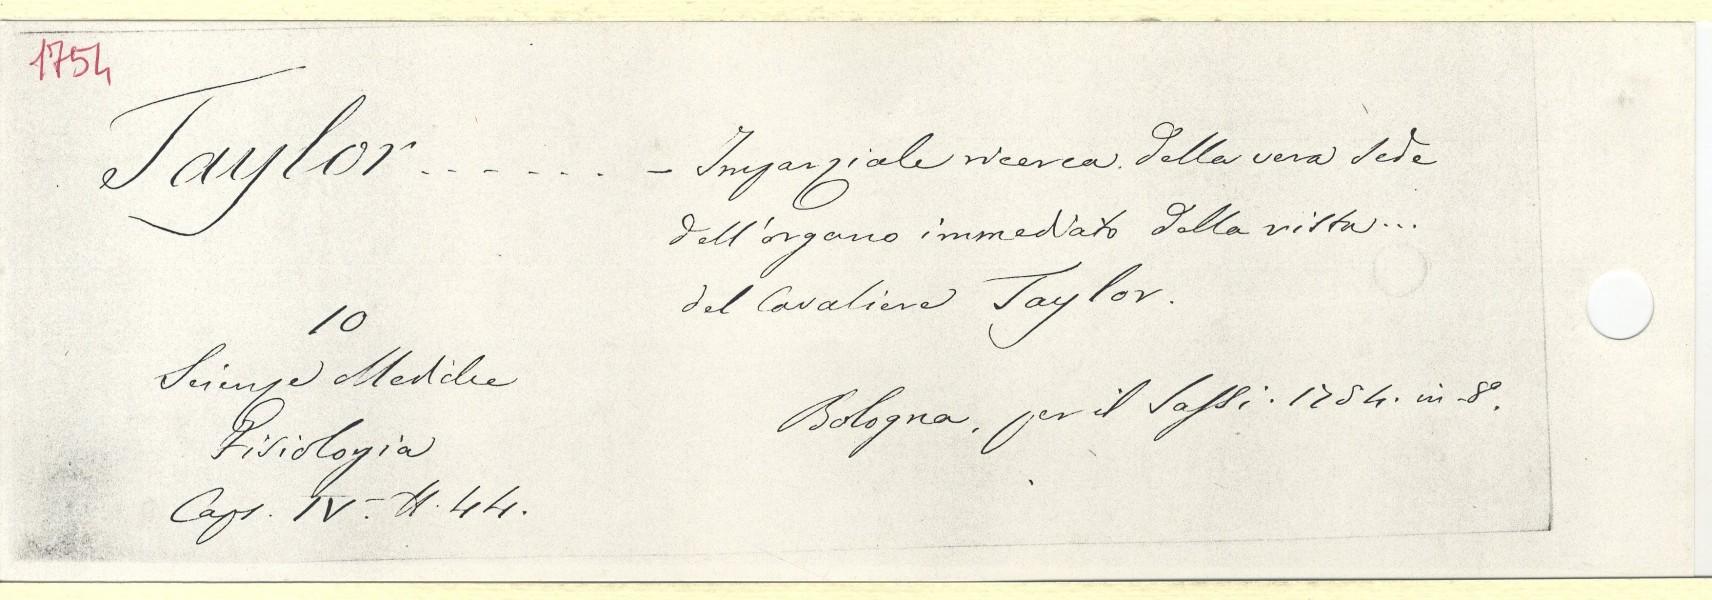 1754
Taylor . . . . . . . - Imparziale ricerca della vera sede
dell'organo immediato della vista...
del Cavaliere Taylor.
Bologna, per il Sassi. 1754. in-8°.
10
Scienze Mediche
Fisiologia
Caps. IV - N. 44.